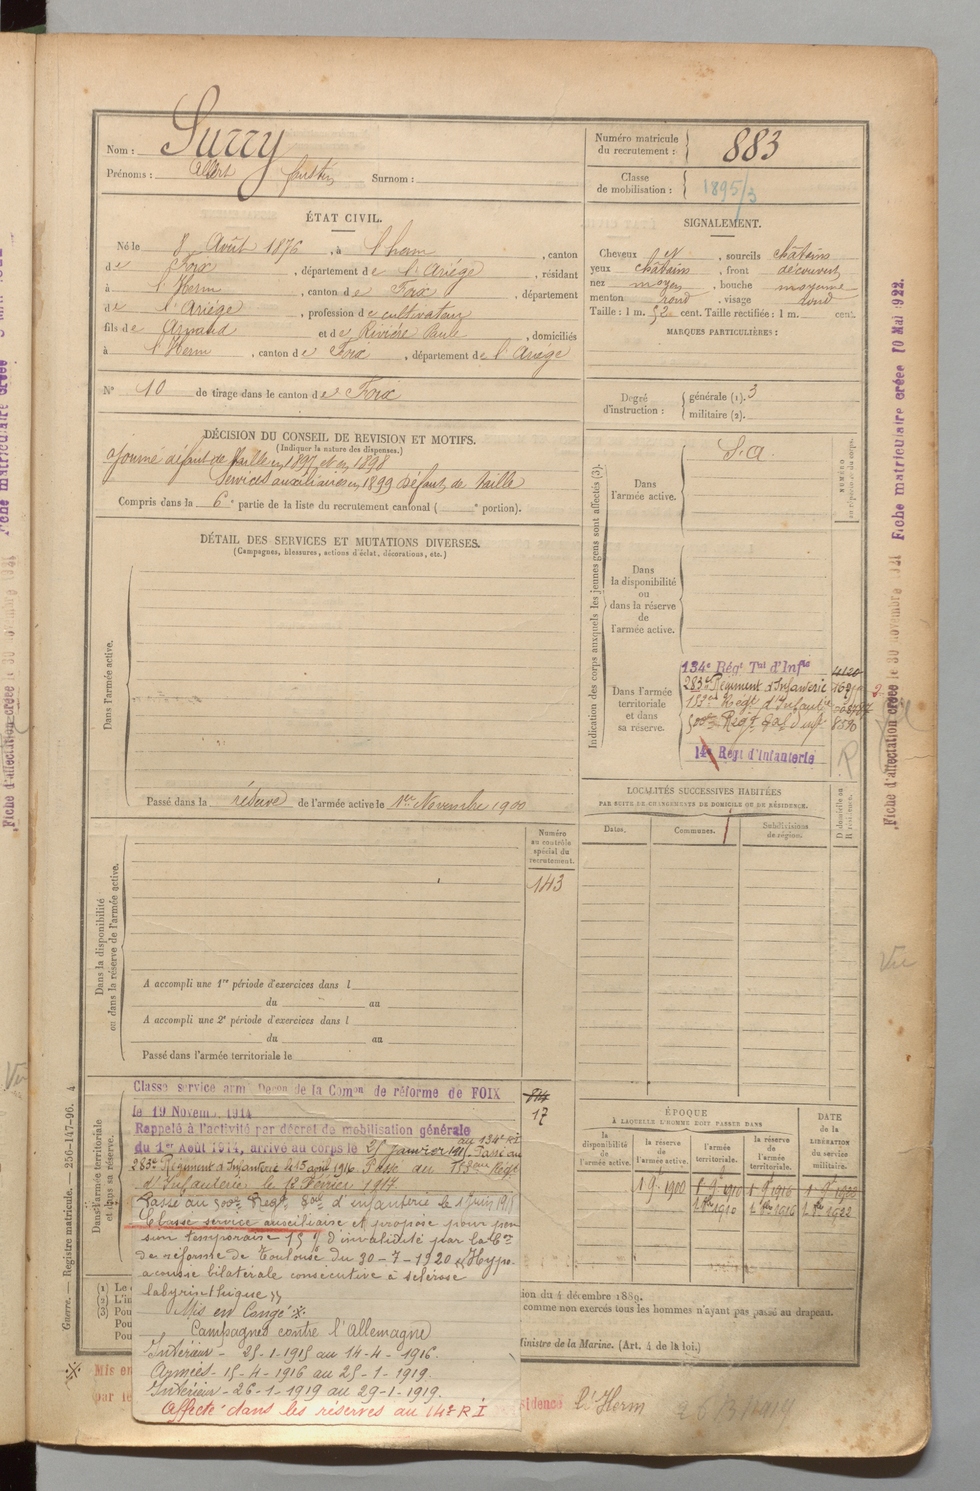 Nom : Surry
Prénoms : Albert Faustin Surnom :
Numéro matricule du recrutement : 883
Classe de mobilisation : 1895/3
ÉTAT CIVIL.
Né le 8 Août 1876, à l'herm, canton
de Foix, département de l'Ariége, résidant
à l'Herm, canton de Foix, département
de l'Ariége, profession de cultivateur
fils de Arnaud et de Rivière Paule, domiciliés
à l'Herm, canton de Foix, département de l'Ariége
SIGNALEMENT.
Cheveux N., sourcils châtains
yeux châtains, front découvert
nez moyen, bouche moyenne
menton rond, visage rond
Taille : 1 m. 52 cent. Taille rectifiée : 1 m. cent.
MARQUES PARTICULIÈRES :
N° 10 de tirage dans le canton de Foix
Degré d'instruction : générale (1). 3
militaire (2).
DÉCISION DU CONSEIL DE REVISION ET MOTIFS.
(Indiquer la nature des dispenses.)
ajourné défaut de taille en 1897 et en 1898
Services auxiliaires en 1899 Défaut de taille
Compris dans la 6e partie de la liste du recrutement cantonal ( e portion).
DÉTAIL DES SERVICES ET MUTATIONS DIVERSES.
(Campagnes, blessures, actions d'éclat, décorations, etc.)
Dans l'armée active.
Passé dans la réserve de l'armée active le 1er Novembre 1900
Indication des corps auxquels les jeunes gens sont affectés (3).
NUMÉRO
Dans l'armée active.
S.A.
Dans la disponibilité ou dans la réserve de l'armée active.
Dans l'armée territoriale et dans sa réserve.
134e Régt Tal d'Infie 4120
283e Régiment d'Infanterie
153eme Régt d'Infanterie
500e Régt Tal d'Inf 8596
14e Regt d'Infanterie
R
LOCALITÉS SUCCESSIVES HABITÉES
PAR SUITE DE CHANGEMENTS DE DOMICILE OU DE RÉSIDENCE.
Dates. Communes. Subdivisions de région. D domicile ou R résidence.
Numéro au contrôle spécial du recrutement.
143
Dans la disponibilité ou dans la réserve de l'armée active.
A accompli une 1re période d'exercices dans l
du au
A accompli une 2e période d'exercices dans l
du au
Passé dans l'armée territoriale le
Dans l'armée territoriale et dans sa réserve.
17
Classé service armé Décon de la Comon de réforme de FOIX
le 19 Novem. 1914
Rappelé à l'activité par décret de mobilisation générale
du 1er Août 1914, arrivé au corps le 25 Janvier 1915 au 134e RI Passé au
283e Régiment d'Infanterie le 15 avril 1916. Passé au 153eme Régt
d'Infanterie le 13 Février 1917
Passé au 500e Régt Tal d'infanterie le 1 Juin 1918
Classé service auxiliaire et proposé pour pen
sion temporaire 15 % d'invalidité par la Con
de réforme de Toulouse du 30-7-1920 « Hypo
acousie bilatérale consecutive à sclérose
labyrinthique »
Mis en Congé ※
Campagnes contre l'Allemagne
Intérieur - 25-1-1915 au 14-4-1916.
Armées - 15-4-1916 au 25-1-1919.
Intérieur - 26-1-1919 au 29-1-1919.
Affecté dans les réserves au 14e R I
ÉPOQUE
À LAQUELLE L'HOMME DOIT PASSER DANS
la disponibilité de l'armée active. la réserve de l'armée active. l'armée territoriale. la réserve de l'armée territoriale.
DATE de la LIBÉRATION du service militaire.
1 9bre 1900 1 9bre 1910 1 9bre 1916 1 9bre 1922
ion du 4 décembre 1889.
comme non exercés tous les hommes n'ayant pas passé au drapeau.
Ministre de la Marine. (Art. 4 de la loi.)
(1) Le
(2) L'in
(3) Pou
Pou
Pou
※ Mis en
par le
sidence l'Herm
Guerre. — Registre matricule. — 256-147-96. 4
Fiche d'affectation créée le 30 novembre 1921 Fiche matriculaire créée 10 Mai 1922.
Vu
Vu